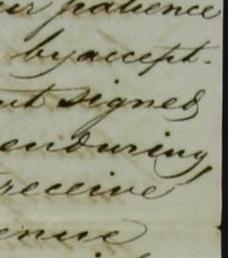 patience
by accept-
signed
enduring
receive